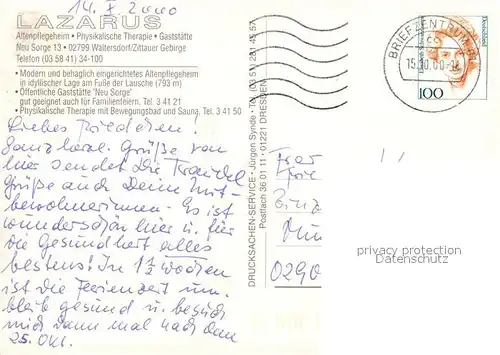 14. X 2000
LAZARUS
Altenpflegeheim • Physikalische Therapie • Gaststätte
Neu Sorge 13 • 02799 Waltersdorf/Zittauer Gebirge
Telefon (03 58 41) 34-100
• Modern und behaglich eingerichtetes Altenpflegeheim
in idyllischer Lage am Fuße der Lausche (793 m)
• Öffentliche Gaststätte "Neu Sorge"
gut geeignet auch für Familienfeiern. Tel. 3 41 21
• Physikalische Therapie mit Bewegungsbad und Sauna. Tel. 3 41 50
Liebes
Ganz herzl. Grüße von
hier sendet Die Traudel
Grüße auch Deine Mit-
bewohnerinnen. Es ist
wunderschön hier u. für
die Gesundheit alles
bestens! In 1 1/2 Wochen
ist die Ferienzeit um.
bleib gesund u. besuch
mich dann mal nach dem
25. Okt.
DRUCKSACHEN-SERVICE • Jürgen Synde • Tel. (03 51) 281 45 57
Postfach 36 01 11 • 01221 DRESDEN
BRIEFZENTRUM
15.10.00
100
Frau
0290
privacy protection